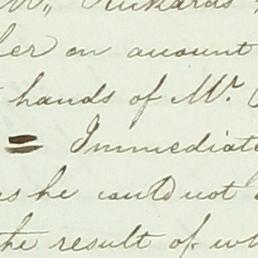 Mr. Rickards
her on account
hands of Mr.
= Immediate
as he could not
the result of wh